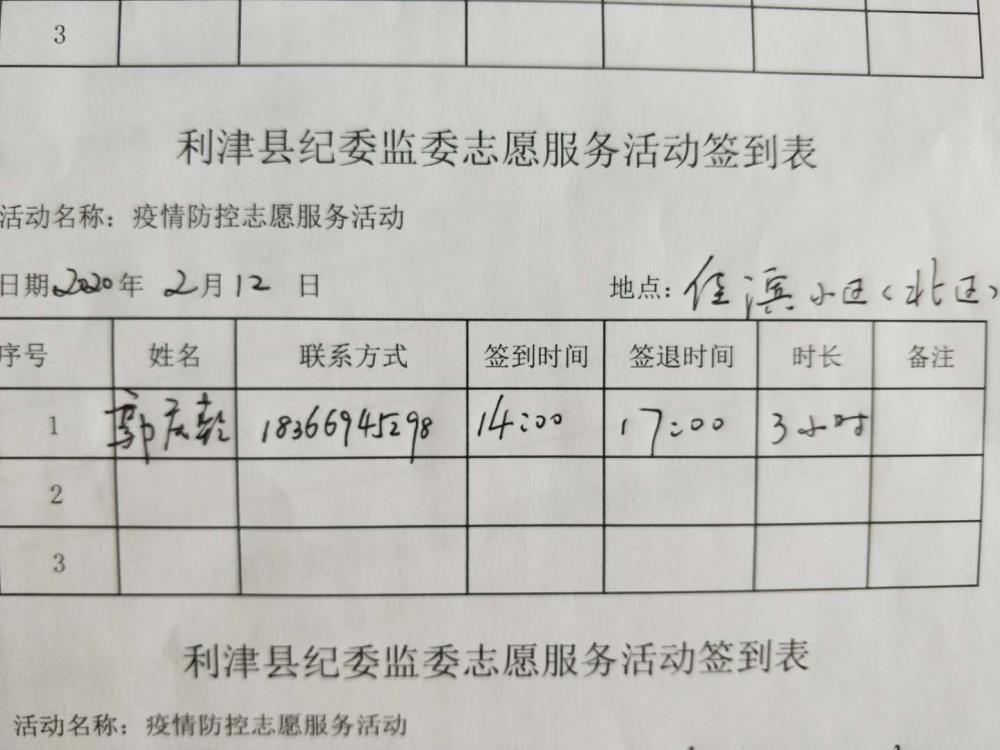 3
利津县纪委监委志愿服务活动签到表
活动名称：疫情防控志愿服务活动
日期2020年 2月12 日 地点：佳滨小区（北区）
序号 姓名 联系方式 签到时间 签退时间 时长 备注
1 郭庆乾 18366945298 14:00 17:00 3小时
2
3
利津县纪委监委志愿服务活动签到表
活动名称：疫情防控志愿服务活动